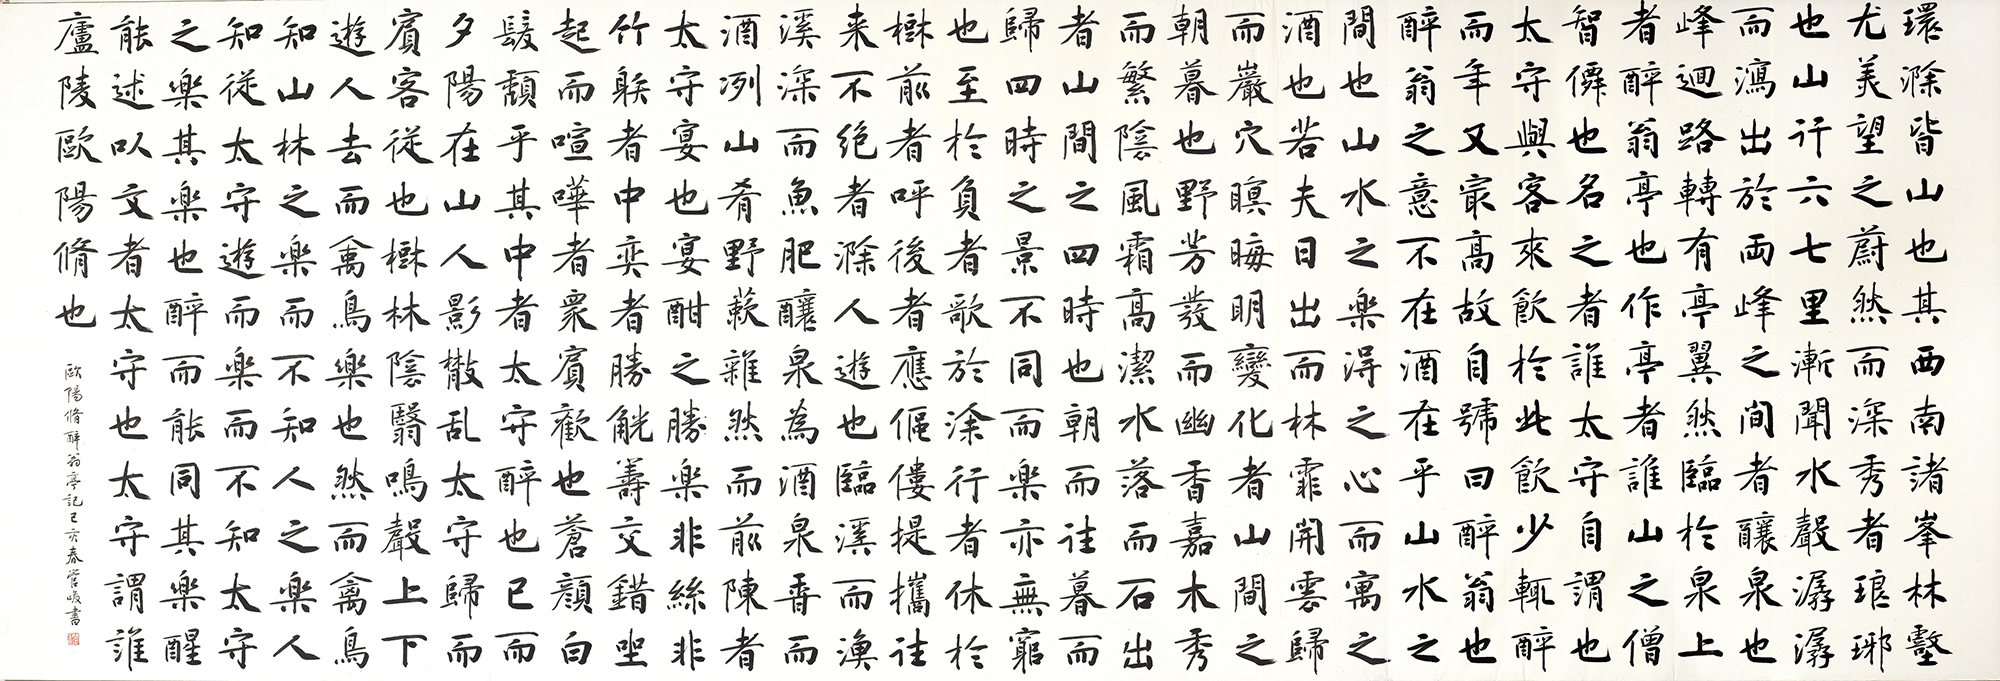 環滁皆山也其西南諸峯林壑
尤美望之蔚然而深秀者琅琊
也山行六七里漸聞水聲潺潺
而瀉出於兩峰之間者釀泉也
峰迴路轉有亭翼然臨於泉上
者醉翁亭也作亭者誰山之僧
智僊也名之者誰太守自謂也
太守與客來飲於此飲少輒醉
而年又最高故自號曰醉翁也
醉翁之意不在酒在乎山水之
間也山水之樂得之心而寓之
酒也若夫日出而林霏開雲歸
而巖穴暝晦明變化者山間之
朝暮也野芳發而幽香嘉木秀
而繁陰風霜高潔水落而石出
者山間之四時也朝而往暮而
歸四時之景不同而樂亦無窮
也至於負者歌於涂行者休於
樹前者呼後者應傴僂提攜往
来不绝者滁人遊也臨溪而漁
溪深而魚肥釀泉為酒泉香而
酒冽山肴野蔌雜然而前陳者
太守宴也宴酣之勝樂非絲非
竹射者中奕者勝觥籌交錯坐
起而喧嘩者眾賓歡也蒼顏白
髮頹乎其中者太守醉也已而
夕陽在山人影散乱太守歸而
賓客從也樹林陰翳鳴聲上下
遊人去而禽鳥樂也然而禽鳥
知山林之樂而不知人之樂人
知從太守遊而樂而不知太守
之樂其樂也醉而能同其樂醒
能述以文者太守也太守謂誰
廬陵歐陽脩也
歐陽脩醉翁亭記己亥春管峻書